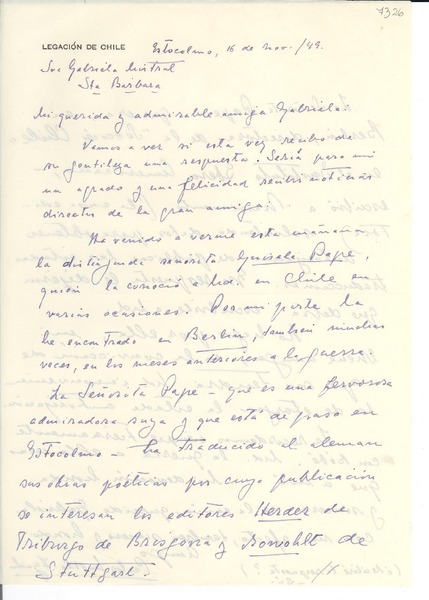 7326
LEGACIÓN DE CHILE
Estocolmo, 16 de Nov./49.
Sra Gabriela Mistral
Sta Barbara
Mi querida y admirable amiga Gabriela:
Vamos a ver si esta vez recibo de
su gentileza una respuesta. Sería para mi
un agrado y una felicidad recibir noticias
directas de la gran amiga.
Ha venido a verme esta mañana
la distinguida señorita Gusela Pape,
quien la conoció a Ud. en Chile en
varias ocasiones. Por mi parte la
he encontrado en Berlin, también muchas
veces, en los meses anteriores a la guerra.
La Señorita Pape - que es una fervorosa
admiradora suya y que está de paso en
Estocolmo - ha traducido al aleman
sus obras poéticas por cuya publicación
se interesan los editores Herder de
Friburgo de Brisgovia y Rowohlt de
Stuttgart.